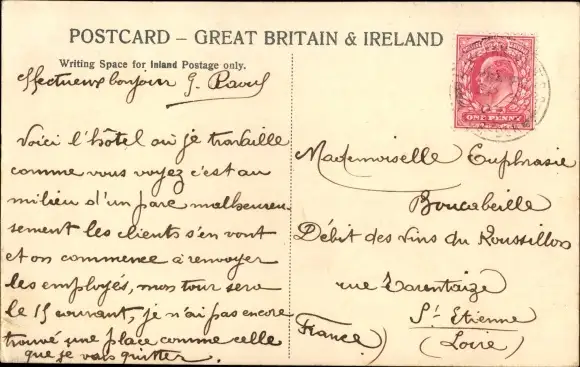 POSTCARD – GREAT BRITAIN & IRELAND
Writing Space for Inland Postage only.
affectueux bonjour G. Raoul
Voici l'hôtel où je travaille
comme vous voyez c'est au
milieu d'un parc malheureu-
sement les clients s'en vont
et on commence à renvoyer
les employés, mon tour sera
le 15 courant, je n'ai pas encore
trouvé une place comme celle
que je vais quitter.
ONE PENNY
Mademoiselle Euphrasie
Boucabeille
Débit des vins du Roussillon
rue Tarentaize
St Etienne
(Loire)
France)